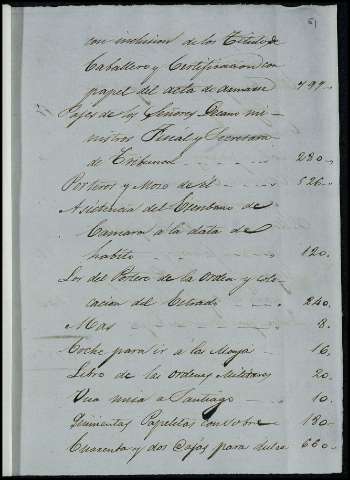 61
con inclusion de los Titulos de
Caballero y Certificacion con
papel del acta de armarse 797..
Pajes de los Señores Decano mi-
nistros Fiscál y Secretaria
de Tribunal 280..
Porteros y Mozo de él 526..
Asistencia del Escribano de
Camara á la data de
habito 120..
Los del Portero de la Orden y colo-
cacion del Estrado 240
Mas 8.
Coche para ir á las Monjas 16.
Libro de las Ordenes Militares 20.
Una misa a Santiago 10.
Quinientas Papeletas con sobre 180..
Cuarenta y dos Cajas para dulce 660..